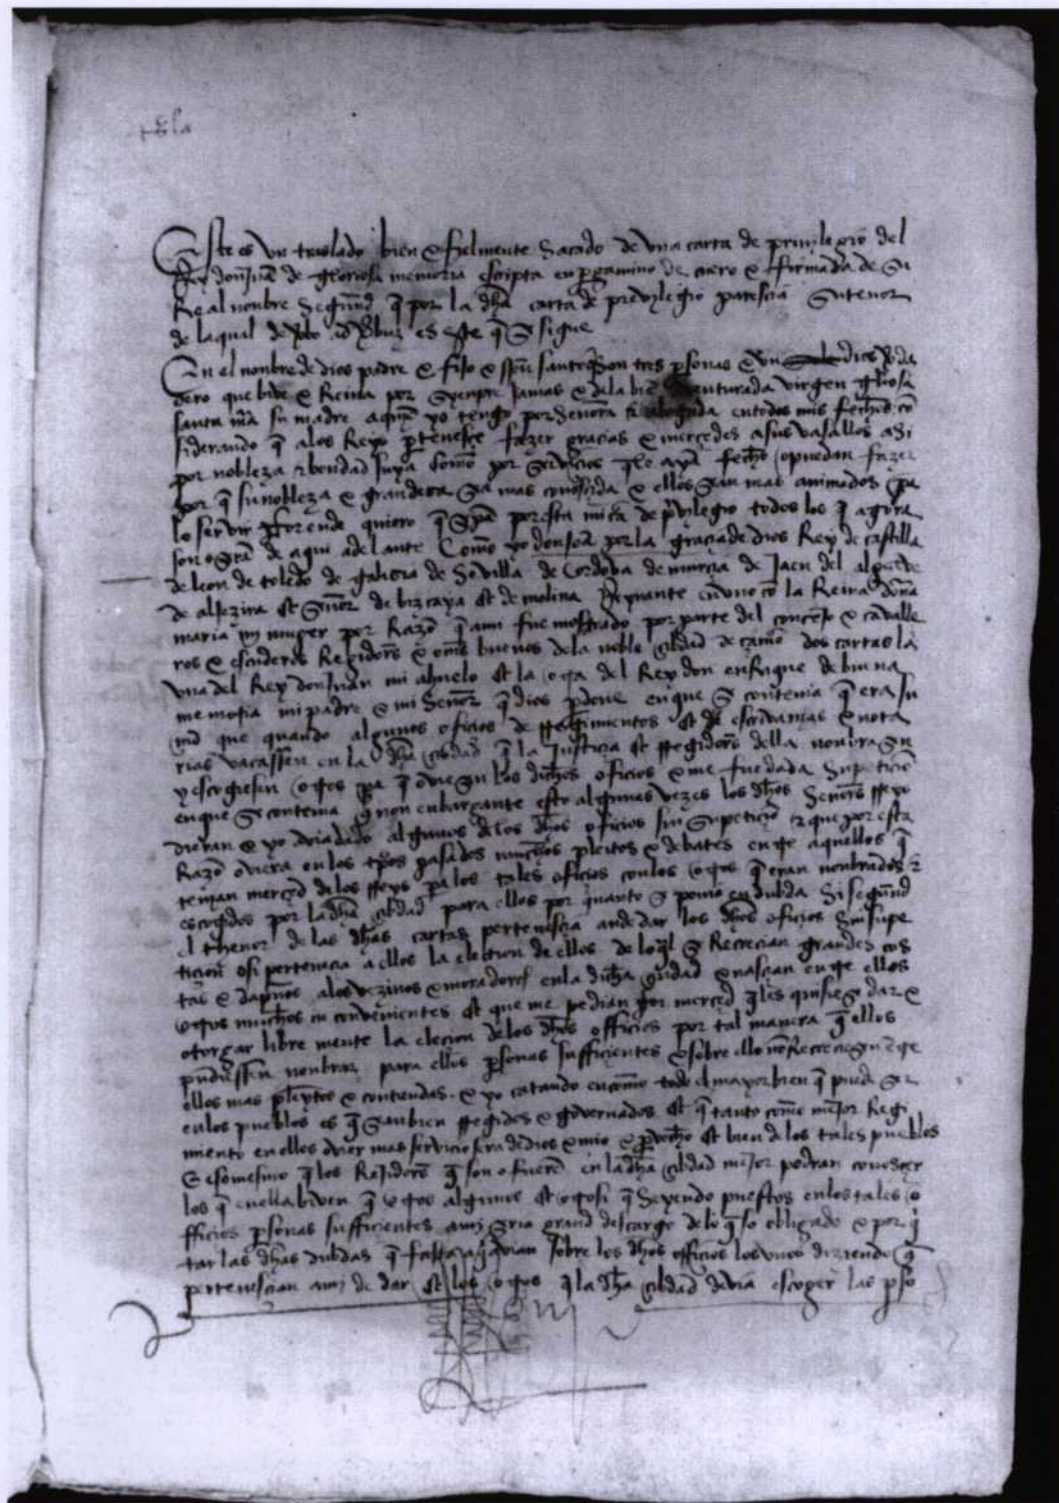 Este es vn traslado bien & fielmente sacado de vna carta de priuilegio del
Rey don Juā de gloriosa memoria escripta en pgamino de cuero & firmada de su
Real nonbre segūd q̄ por la dh̄a carta de preuylegio parescia su tenor
de la qual de vbo ad vbuz es este q̄ se sigue
En el nonbre de dios padre & fijo & spū santo q̄ son tres psonas & vn dios verda
dero que biue & Reina por syenpre jamas & de la bien enturada virgen gl̄iosa
santa mā su madre a quiē yo tengo por señora & abogada en todos mis fechos cō
siderando q̄ a los Reys pertenesce fazer gracias & mercedes a sus vasallos asi
por nobleza & bondad suya como por seruicios q̄ le ayā fecho o puedan fazer
por q̄ su nobleza & grandeza sea mas conoscida & ellos sean mas animados pa
lo seruir por ende quiero q̄ sepā por esta mi cā de puilegio todos los q̄ agora
son o serā de aqui adelante Como yo don joā por la gracia de dios Rey de castilla
de leon de toledo de galizia de seuilla de cordoua de murcia de jaen del algarbe
de aljezira et señor de bizcaya et de molina Reynante en vno cō la Reina doña
maria my muger por Razō q̄ a mi fue mostrado por parte del concejo & caualle
ros & escuderos Regidores & om̄s buenos de la noble cibdad de çamō dos cartas la
vna del Rey don juan mi abuelo et la otra del Rey don enrrique de buena
memoria mi padre & mi señor q̄ dios pdone en que se contenia q̄ era su
md que quando algunos oficios de rregimientos et de escriuanias & nota
rias vacassen en la dh̄a cibdad q̄ la justicia et rregidores della nonbrasen
y escogiesen otros pa q̄ ouiesen los dichos oficios & me fue dada su peticiō
en que se contenia q̄ non enbargante esto algunas vezes los dh̄os señores rreys
dieran & yo auia dado algunos de los dh̄os oficios sin su peticiō & que por esta
Razō ouiera en los tpos pasados muchos pleitos & debates entre aquellos q̄
tenian merced de los rreys pa los tales oficios con los otros q̄ eran nonbrados &
escogidos por la dh̄a cibdad para ellos por quanto se ponia en dubda si segund
el thenor de las dh̄as cartas pertenescia a nde dar los dh̄os oficios sin su pe
ticion o si pertenecia a ellos la election de ellos de lo ql se Recrecian grandes cos
tas & daños a los vezinos & moradores en la dicha cibdad & nascian entre ellos
otros muchos inconvenientes et que me pedian por merced q̄ les quisiese dar &
otorgar libre mente la elecion de los dh̄os officios por tal manera q̄ ellos
pudiessen nonbrar para ellos psonas sufficientes & sobre ello nō Recreciesen entre
ellos mas pleytos & contiendas & yo catando en como todo el mayor bien q̄ puede ser
en los pueblos es q̄ sean bien rregidos & gouernados et q̄ tanto como mejor Regi
miento en ellos ouier mas seruicio sera de dios & mio & puecho et bien de los tales pueblos
& eso mesmo q̄ los Regidores q̄ son o fuerē en la dh̄a cibdad mejor podran conoscer
los q̄ en ella biuen q̄ otros algunos et otrosi q̄ seyendo puestos en los tales o
fficios psonas sufficientes a my seria grand descargo de lo q̄ so obligado & por q̄
tar las dh̄as dubdas q̄ fasta aq̄ auian sobre los dh̄os officios los vnos diziendo q̄
pertenescian a my de dar et los otros q̄ la dh̄a cibdad deuia escoger las pso